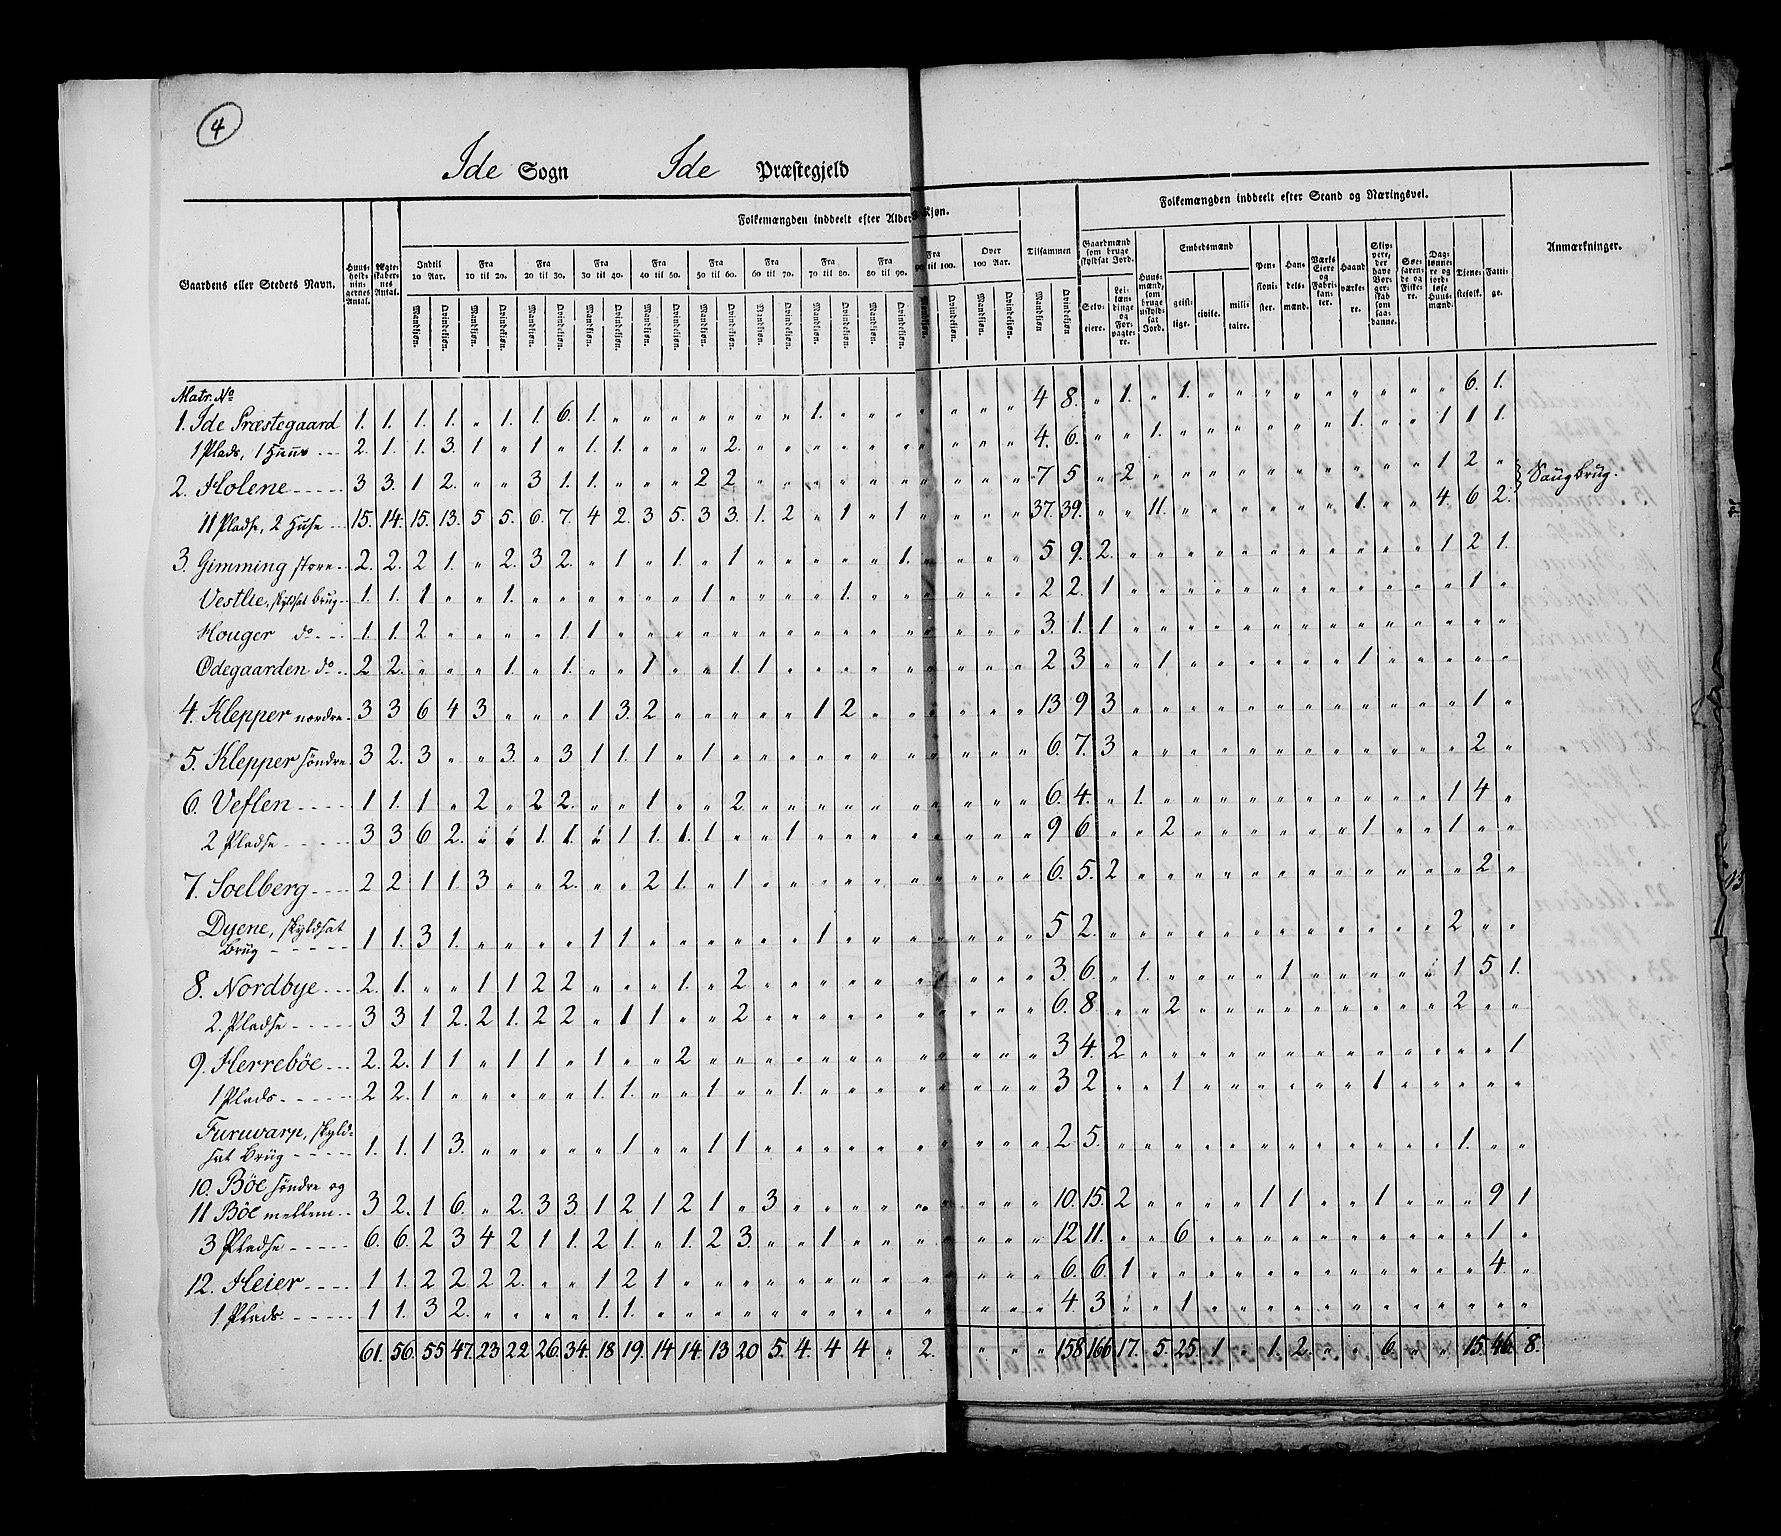 4
Ide Sogn Ide Præstegjeld
Gaardens eller Stedets Navn.
Huusholdningernes Antal.
Ægteskabernes Antal.
Folkemængden inddeelt efter Alder Kjøn.
Folkemængden inddeelt efter Stand og Næringsvei.
Anmærkninger.
Indtil 10 Aar. Fra 10 til 20. Fra 20 til 30. Fra 30 til 40. Fra 40 til 50. Fra 50 til 60. Fra 60 til 70. Fra 70 til 80. Fra 80 til 90. Fra 90 til 100. Over 100 Aar. Tilsammen
Mandkjøn. Qvindekjøn.
Gaardmænd som bruge skyldsat Jord. Selveiere. Leilændinge og Forpagtere. Huusmænd, som bruge uskyldsat Jord. Embedsmænd geistlige. civile. militaire. Pensionister. Handelsmænd. Værks Eiere og Fabrikanter. Haandværkere. Skippere, der have Borgerskab som saadanne. Søefarende og Fiskere. Daglønnere og jordløse Huusmænd. Tjenestefolk. Fattige.
Matr. No
1. Ide Præstegaard 1. 1. 1. 1. „ 1. 1. 6. 1. „ „ „ „ „ „ „ 1. „ „ „ „ „ „ „ 4 8. „ 1. „ 1. „ „ „ „ „ „ „ „ „ 6. 1.
1 Plads, 1 Huus 2. 1. 1. 3. 1 „ 1 „ 1. 1. „ „ „ 2. „ „ „ „ „ „ „ „ „ „ 4. 6. „ „ 1. „ „ „ „ „ „ 1. „ „ 1 1 1.
2. Holene 3 3. 1 2. „ „ 3 1. 1. „ „ „ 2 2 „ „ „ „ „ „ „ „ „ „ 7 5 „ 2 „ „ „ „ „ „ „ „ „ „ 1 2 „ Saugbrug.
11 Pladse, 2 Huse 15. 14. 15. 13. 5 5. 6. 7. 4 2. 3 5. 3 3. 1. 2 „ 1 „ 1 „ „ „ „ 37. 39. „ „ 11. „ „ „ „ „ „ 1. „ „ 4. 6 2.
3. Gimming store 2. 2. 2 1. „ 2. 3 2. „ 1 „ 1. „ 1 „ „ „ „ „ 1. „ „ „ „ 5 9. 2. „ „ „ „ „ „ „ „ „ „ „ 1 2 1.
Vestlie, skyldsat Brug 1. 1. 1 „ „ 1. „ „ „ „ „ „ 1 „ „ „ „ 1. „ „ „ „ „ „ 2 2. 1 „ „ „ „ „ „ „ „ „ „ „ „ 1 „
Houger do 1. 1. 2 „ „ „ „ 1 1 „ „ „ „ „ „ „ „ „ „ „ „ „ „ „ 3. 1. 1 „ „ „ „ „ „ „ „ „ „ „ „ „ „
Ødegaarden do 2 2. „ „ „ 1 „ 1. „ „ 1 „ „ 1 1 „ „ „ „ „ „ „ „ „ 2 3 „ „ 1 „ „ „ „ „ „ 1 „ „ „ „ „
4. Klepper nordre 3 3 6 4 3 „ „ „ 1 3. 2 „ „ „ „ „ 1 2 „ „ „ „ „ „ 13 9 3 „ „ „ „ „ „ „ „ „ „ „ „ 1 „
5. Klepper söndre 3 2. 3 „ „ 3. „ 3 1 1. 1 „ 1 „ „ „ „ „ „ „ „ „ „ „ 6. 7. 3 „ „ „ „ „ „ „ „ „ „ „ „ 2 „
6. Veflen 1 1. 1 „ 2 „ 2 2. „ „ 1 „ „ 2 „ „ „ „ „ „ „ „ „ „ 6. 4. „ 1. „ „ „ „ „ „ „ „ „ „ 1 4 „
2 Pladse 3 3 6 2. „ „ 1. 1. „ 1 1. 1. 1 „ „ 1 „ „ „ „ „ „ „ „ 9 6 „ „ 2 „ „ „ „ „ „ 1 „ „ 1 „ „
7. Soelberg 2 2 1 1. 3 „ „ 2. „ „ 2 1. „ 1 „ „ „ „ „ „ „ „ „ „ 6. 5. 2 „ „ „ „ „ „ „ „ „ „ „ „ 2 „
Dyene, skyldsat
Brug 1 1. 3 1. „ „ „ „ 1 1 „ „ „ „ „ „ 1 „ „ „ „ „ „ „ 5 2. „ „ „ „ „ „ „ „ „ „ „ „ 2 „ „
8. Nordbye 2. 1. „ „ 1 1 2 2 „ „ „ 1. „ 2 „ „ „ „ „ „ 1 „ „ „ 3. 6 „ 1. „ „ „ „ 1 „ „ „ „ „ 1 5 1.
2. Pladse 3 3 1 2. 2 1. 2 2 „ 1 1 „ „ 2 „ „ „ „ „ „ „ „ „ „ 6. 8 „ „ 2 „ „ „ „ „ „ „ „ „ 2 „ „
9. Herrebõe 2. 2. 1 1 „ 1 1 „ 1 „ „ 2 „ „ „ „ „ „ „ „ „ „ „ „ 3 4. 2 „ „ „ „ „ „ „ „ „ „ „ „ „ 1
1 Plads 2 2. 1 „ „ „ „ „ 1. 1. „ „ 1 „ „ 1. „ „ „ „ „ „ „ „ 3 2 „ „ 1 „ „ „ „ „ „ 1 „ „ „ „ „
Furuvarp, skyld=
sat Brüg 1. 1. 1 3. „ „ „ „ „ 1 „ „ 1 1 „ „ „ „ „ „ „ „ „ „ 2 5. „ „ „ „ „ „ „ „ „ „ „ „ 1. „ „
10. Böe söndre og
11 Böe mellem 3 2. 1 6. „ 2. 3 3. 1 2 1 2 1 „ 3 „ „ „ „ „ „ „ „ „ 10. 15. 2 „ „ „ „ „ 1 1 „ „ 1 „ „ 9 1
3 Pladse 6. 6. 2 3 4 2 1 1. 2 1. „ 1. 2 3. „ „ 1 „ „ „ „ „ „ „ 12 11. „ „ 6 „ „ „ „ „ „ „ „ „ „ 1 „
12. Heier 1 1. 2 2 2 2. „ „ 1 2 1 „ „ „ „ „ „ „ „ „ „ „ „ „ 6. 6. 1 „ „ „ „ „ „ „ „ „ „ „ „ 4. „
1 Plads 1 1. 3 2. „ „ „ „ 1. 1. „ „ „ „ „ „ „ „ „ „ „ „ „ „ 4 3 „ „ 1 „ „ „ „ „ „ „ „ „ „ „ „
61. 56. 55 47. 23 22 26. 34. 18 19. 14 14. 13 20 5. 4. 4 4 „ 2. „ „ „ 158 166 17. 5. 25. 1 „ 1. 2. „ „ 6. „ „ 15. 46. 8.